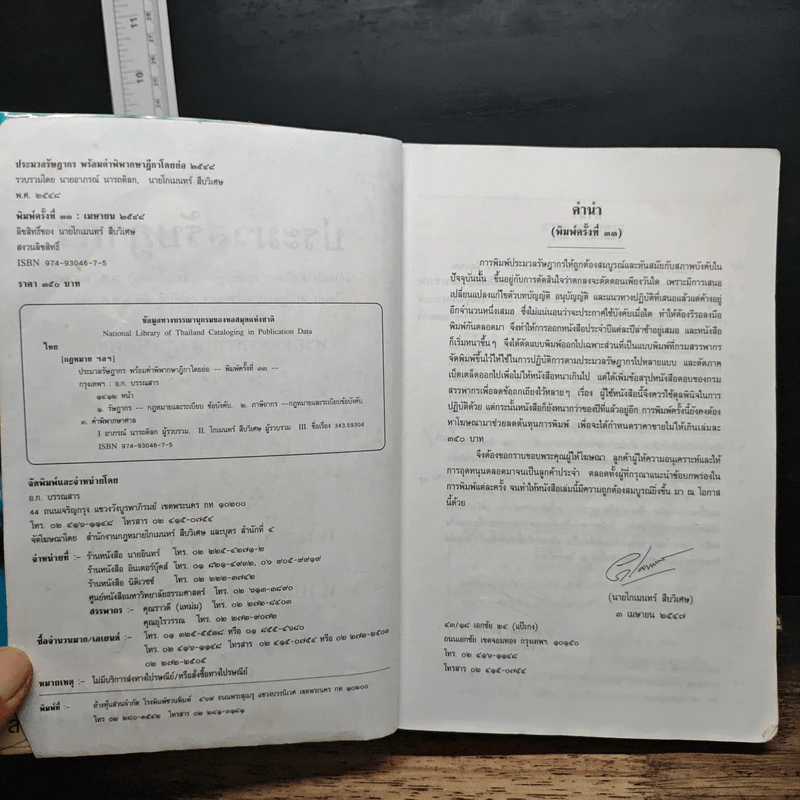 ประมวลรัษฎากร พร้อมคำพิพากษาฎีกาโดยย่อ ๒๕๔๘
รวบรวมโดย นายอาภรณ์ นารถดิลก, นายโกเมนทร์ สืบวิเศษ
พ.ศ. ๒๕๔๘
พิมพ์ครั้งที่ ๓๓ : เมษายน ๒๕๔๘
ลิขสิทธิ์ของ นายโกเมนทร์ สืบวิเศษ
สงวนลิขสิทธิ์
ISBN 974-93046-7-5
ราคา ๓๕๐ บาท
ข้อมูลทางบรรณานุกรมของหอสมุดแห่งชาติ
National Library of Thailand Cataloging in Publication Data
ไทย
[กฎหมาย ฯลฯ]
ประมวลรัษฎากร พร้อมคำพิพากษาฎีกาโดยย่อ -- พิมพ์ครั้งที่ ๓๓ --
กรุงเทพฯ : อ.ก. บรรณสาร
๑๔๑๒ หน้า
๑. รัษฎากร -- กฎหมายและระเบียบ ข้อบังคับ. ๒. ภาษีอากร --กฎหมายและระเบียบข้อบังคับ.
๓. คำพิพากษาศาล
I อาภรณ์ นารถดิลก ผู้รวบรวม. II. โกเมนทร์ สืบวิเศษ ผู้รวบรวม III. ชื่อเรื่อง 343.59304
ISBN 974-93046-7-5
จัดพิมพ์และจำหน่ายโดย
อ.ก. บรรณสาร
44 ถนนเจริญกรุง แขวงวังบูรพาภิรมย์ เขตพระนคร กท ๑๐๒๐๐
โทร. ๐๒ ๔๑๖-๑๑๔๘ โทรสาร ๐๒ ๔๑๕-๐๗๕๔
จัดโฆษณาโดย สำนักงานกฎหมายโกเมนทร์ สืบวิเศษ และบุตร สำนักที่ ๔
จำหน่ายที่ :- ร้านหนังสือ นายอินทร์ โทร. ๐๒ ๒๒๕-๔๒๗๑-๒
ร้านหนังสือ อินเตอร์บุ๊คส์ โทร. ๐๑ ๘๒๑-๔๙๒๖, ๐๖ ๙๐๕-๙๙๑๙
ร้านหนังสือ นิติเวชช์ โทร. ๐๒ ๒๒๒-๓๗๔๒
ศูนย์หนังสือมหาวิทยาลัยธรรมศาสตร์ โทร. ๐๒ ๖๑๓-๓๘๙๐
สรรพากร : คุณราวดี (แหม่ม) โทร. ๐๒ ๒๗๒-๘๔๐๓
คุณอุไรวรรณ โทร. ๐๒ ๒๗๒-๙๐๗๒
ซื้อจำนวนมาก/เอเยนต์ :- โทร. ๐๑ ๓๒๕-๕๕๓๘ หรือ ๐๑ ๘๕๕-๔๖๘๐
โทร. ๐๒ ๔๑๖-๑๑๔๘ โทรสาร ๐๒ ๔๑๕-๐๗๕๔ หรือ ๐๒ ๒๗๒-๒๕๐๓
๐๒ ๒๗๒-๒๕๐๕
หมายเหตุ :- ไม่มีบริการส่งทางไปรษณีย์/หรือสั่งซื้อทางไปรษณีย์
พิมพ์ที่ :- ห้างหุ้นส่วนจำกัด โรงพิมพ์ชวนพิมพ์ ๔๖๙ ถนนพระสุเมรุ แขวงบวรนิเวศ เขตพระนคร กท ๑๐๒๐๐
โทร ๐๒ ๒๘๐-๓๕๔๒ โทรสาร ๐๒ ๒๘๑-๓๑๘๑
คำนำ
(พิมพ์ครั้งที่ ๓๓)
การพิมพ์ประมวลรัษฎากรให้ถูกต้องสมบูรณ์และทันสมัยกับสภาพบังคับใน
ปัจจุบันนั้น ขึ้นอยู่กับการตัดสินใจว่าตกลงจะตัดตอนเพียงวันใด เพราะมีการเสนอ
เปลี่ยนแปลงแก้ไขตัวบทบัญญัติ อนุบัญญัติ และแนวทางปฏิบัติที่เสนอแล้วแต่ค้างอยู่
อีกจำนวนหนึ่งเสมอ ซึ่งไม่แน่นอนว่าจะประกาศใช้บังคับเมื่อใด ทำให้ต้องรีรอลงมือ
พิมพ์กันตลอดมา จึงทำให้การออกหนังสือประจำปีแต่ละปีล่าช้าอยู่เสมอ และหนังสือ
ก็เริ่มหนาขึ้นๆ จึงได้ตัดแบบพิมพ์ออกไปเฉพาะส่วนที่เป็นแบบพิมพ์ที่กรมสรรพากร
จัดพิมพ์ขึ้นไว้ให้ใช้ในการปฏิบัติการตามประมวลรัษฎากรไปหลายแบบ และตัดภาค
เบ็ดเตล็ดออกไปเพื่อไม่ให้หนังสือหนาเกินไป แต่ได้เพิ่มข้อสรุปหนังสือตอบของกรม
สรรพากรเพื่อลดข้อถกเถียงไว้หลายๆ เรื่อง ผู้ใช้หนังสือนี้จึงควรใช้ดุลพินิจในการ
ปฏิบัติด้วย แต่กระนั้นหนังสือก็ยังหนากว่าของปีที่แล้วอยู่อีก การพิมพ์ครั้งนี้ยังคงต้อง
หาโฆษณามาช่วยลดต้นทุนการพิมพ์ เพื่อจะได้กำหนดราคาขายไม่ให้เกินเล่มละ
๓๕๐ บาท
จึงต้องขอกราบขอบพระคุณผู้ให้โฆษณา ลูกค้าผู้ให้ความอนุเคราะห์และให้
การอุดหนุนตลอดมาจนเป็นลูกค้าประจำ ตลอดทั้งผู้ที่กรุณาแนะนำข้อบกพร่องใน
การพิมพ์แต่ละครั้ง จนทำให้หนังสือเล่มนี้มีความถูกต้องสมบูรณ์ยิ่งขึ้น มา ณ โอกาส
นี้ด้วย
(นายโกเมนทร์ สืบวิเศษ)
๓ เมษายน ๒๕๔๗
๔๓/๑๘ เอกชัย ๒๔ (แป๊ะกง)
ถนนเอกชัย เขตจอมทอง กรุงเทพฯ ๑๐๑๕๐
โทร. ๐๒ ๔๑๖-๑๑๔๘
โทรสาร ๐๒ ๔๑๕-๐๗๕๔